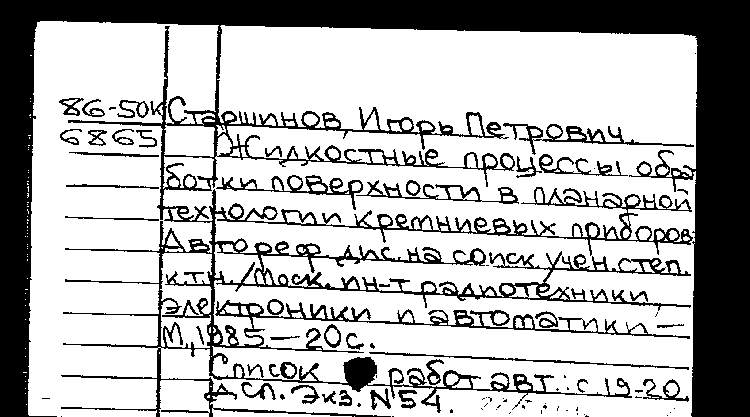 86-50К Старшинов, Игорь Петрович.
6865 Жидкостные процессы обра
ботки поверхности в планарной
технологии кремниевых приборов.
Автореф дис. на соиск. учен. степ.
к.т.н. / Моск. ин-т радиотехники,
электроники и автоматики —
М., 1985. — 20 с.
Список работ авт.: с 19-20.
ДСП. Экз. N 54.